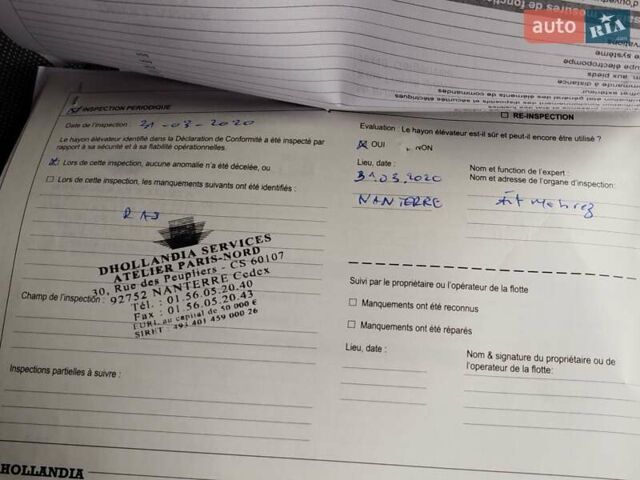 auto RIA.com
INSPECTION PERIODIQUE
Date de l'inspection : 31-03-2020
Le hayon élévateur identifié dans la Déclaration de Conformité a été inspecté par
rapport à sa sécurité et à sa fiabilité opérationnelles.
Lors de cette inspection, aucune anomalie n'a été décelée, ou
Lors de cette inspection, les manquements suivants ont été identifiés :
RAS
DHOLLANDIA SERVICES
ATELIER PARIS-NORD
30, Rue des Peupliers - CS 60107
92752 NANTERRE Cedex
Tél. : 01.56.05.20.40
Fax : 01.56.05.20.43
EURL au capital de 50 000 €
SIRET : 493 401 459 000 26
Champ de l'inspection :
Inspections partielles à suivre :
HOLLANDIA
RE-INSPECTION
Evaluation : Le hayon élévateur est-il sûr et peut-il encore être utilisé ?
OUI
NON
Lieu, date :
31.03.2020
NANTERRE
Nom et function de l'expert :
Nom et adresse de l'organe d'inspection:
Suivi par le propriétaire ou l'opérateur de la flotte
Manquements ont été reconnus
Manquements ont été réparés
Lieu, date :
Nom & signature du propriétaire ou de
l'operateur de la flotte: